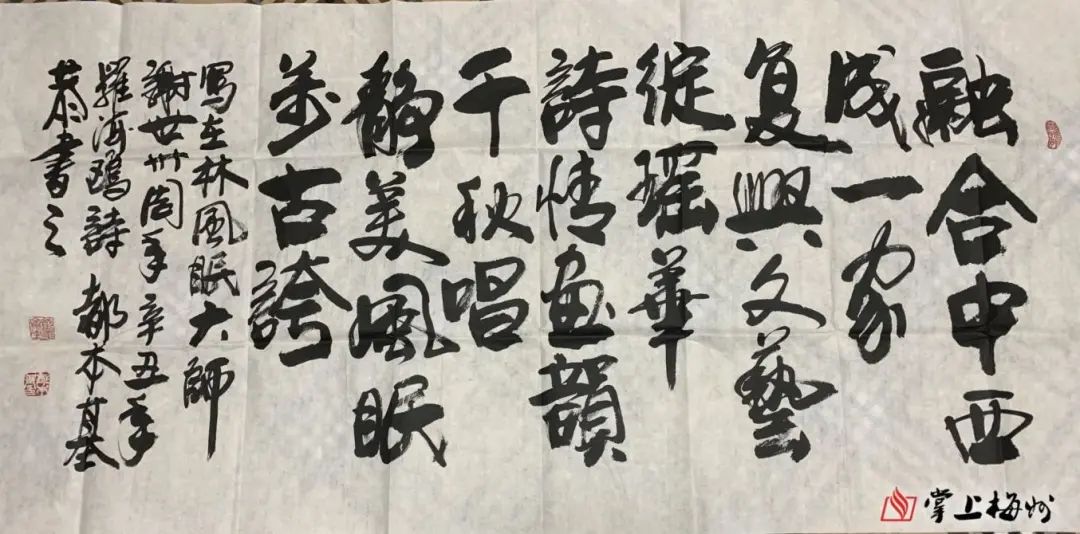 融合中西
成一家
复興文藝
綻瑶華
詩情画韻
千秋唱
靜美風眠
万古誇
寫在林風眠大師
謝世卅周年辛丑年
羅海鷗詩 都本基
恭書之
掌上梅州